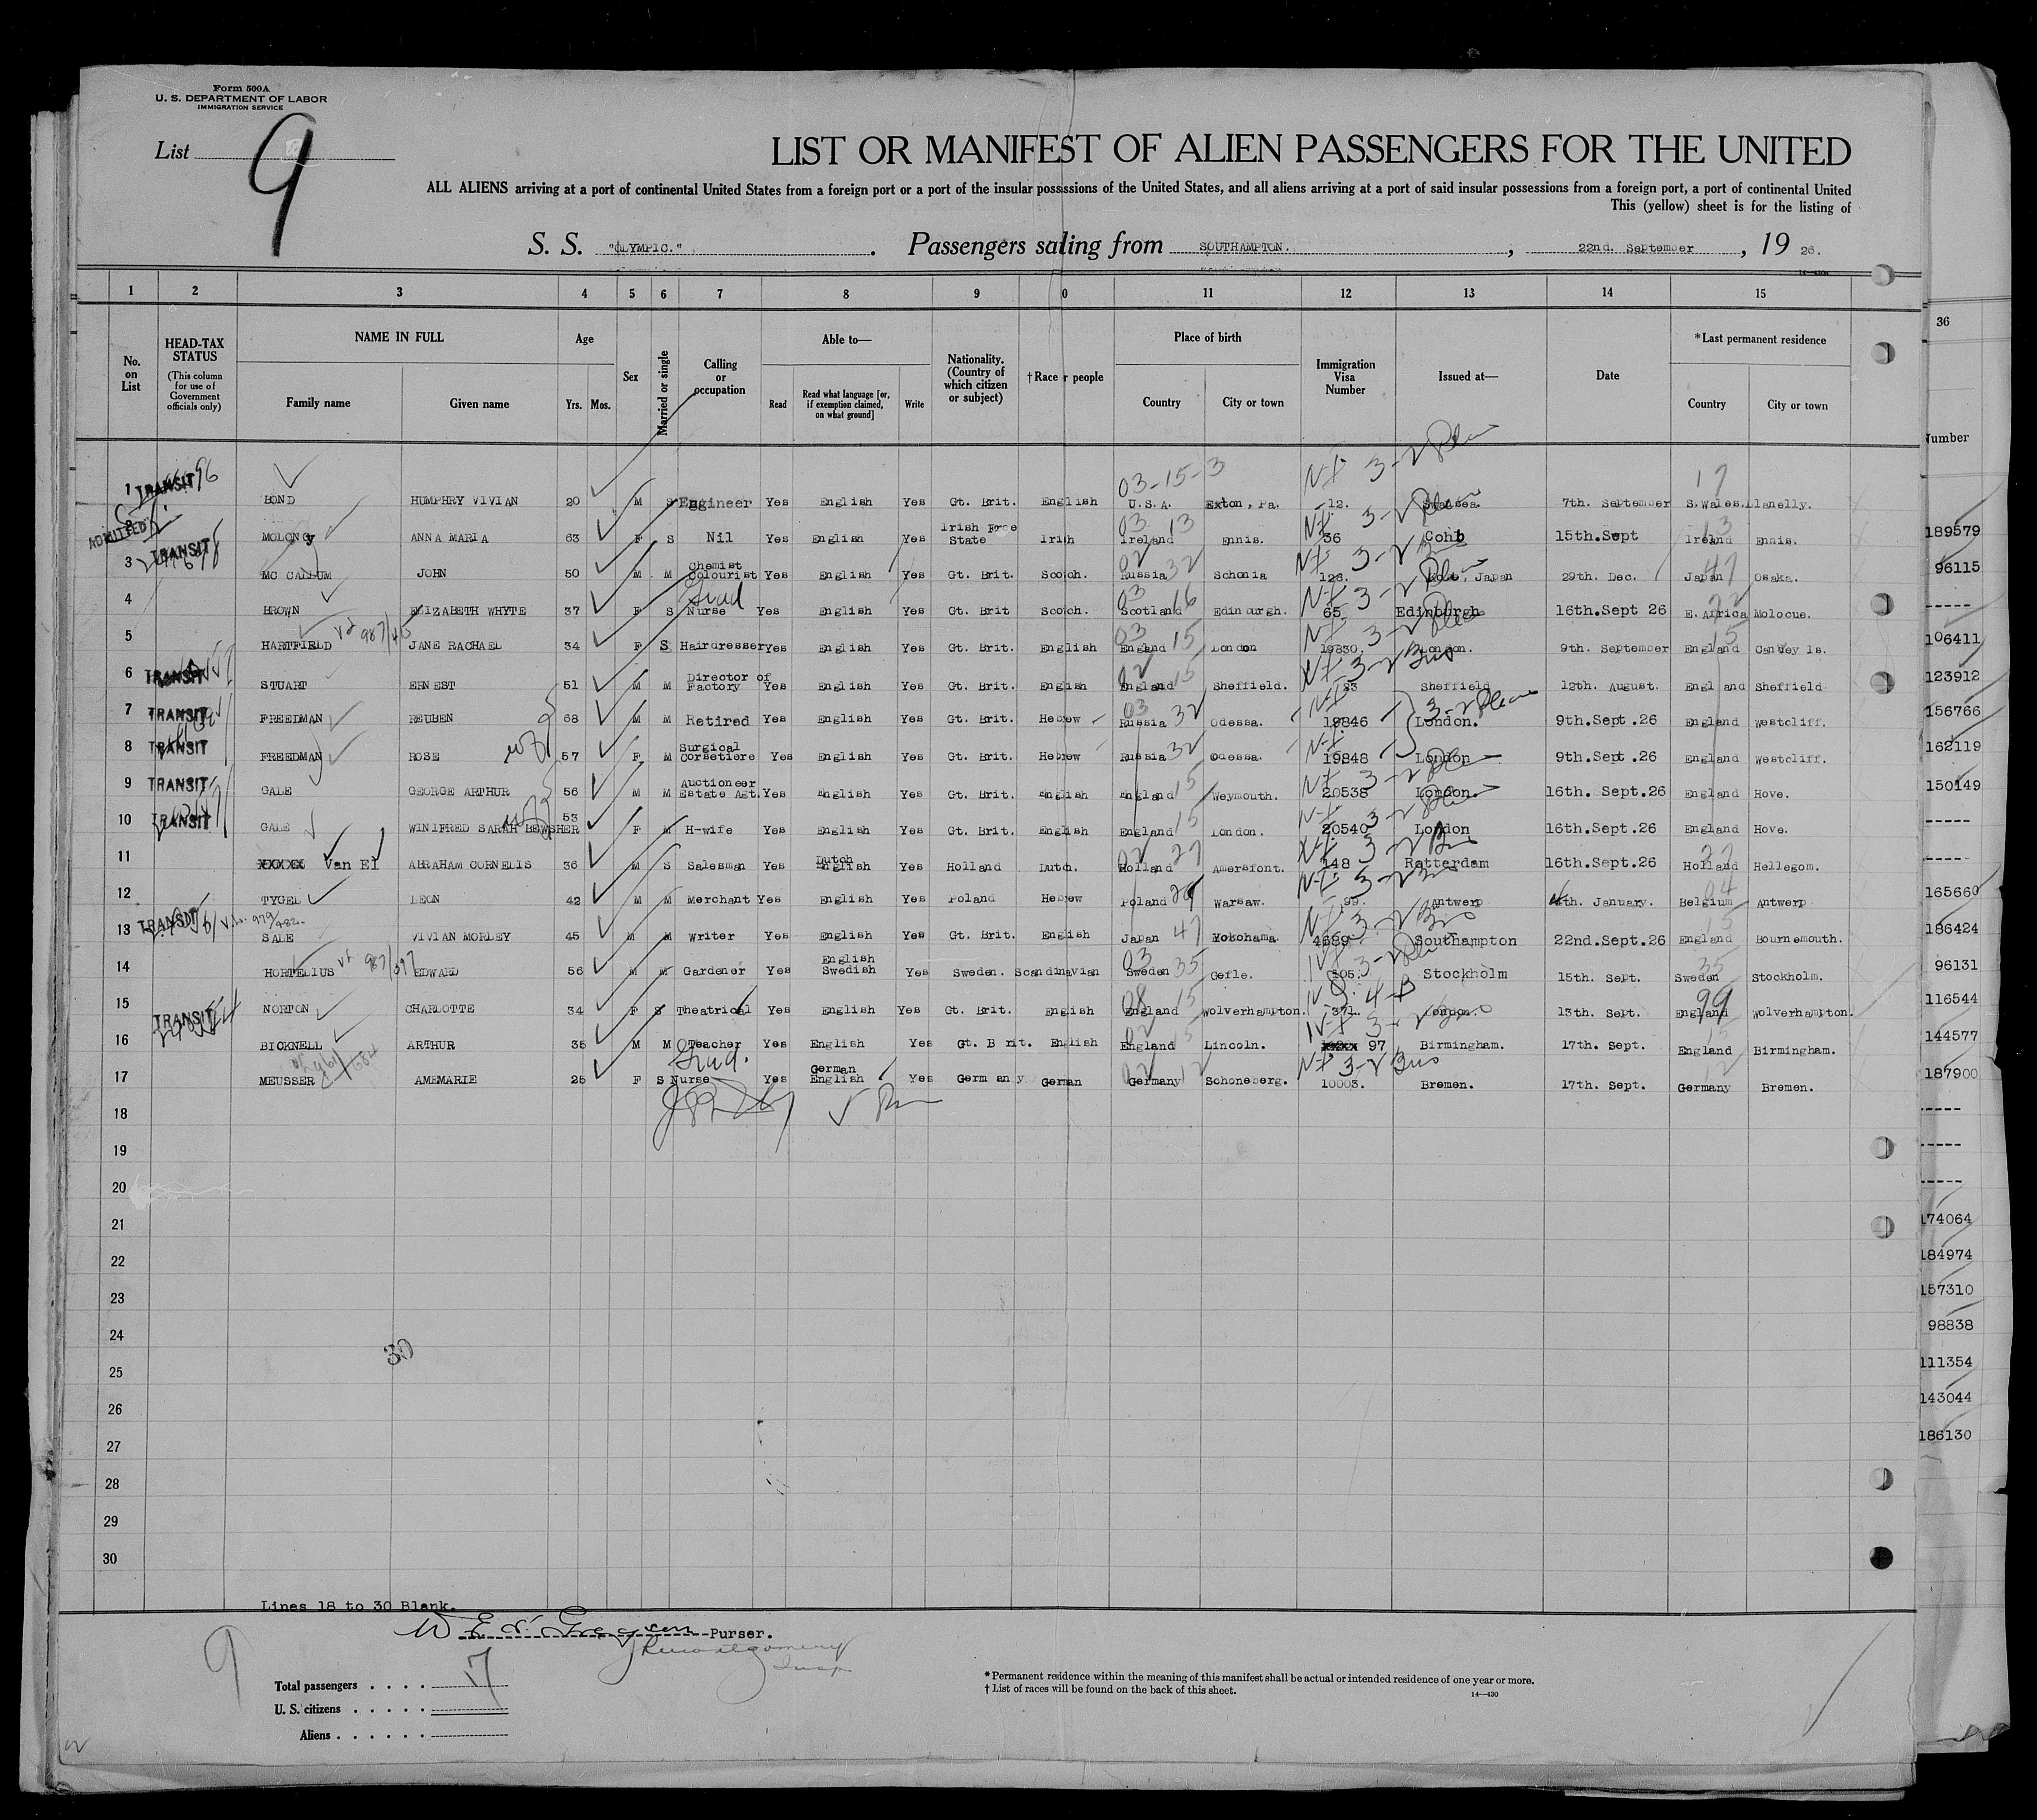 Form 500A
U. S. DEPARTMENT OF LABOR
IMMIGRATION SERVICE
List 9
LIST OR MANIFEST OF ALIEN PASSENGERS FOR THE UNITED
ALL ALIENS arriving at a port of continental United States from a foreign port or a port of the insular possessions of the United States, and all aliens arriving at a port of said insular possessions from a foreign port, a port of continental United
This (yellow) sheet is for the listing of
S. S. "OLYMPIC." Passengers sailing from SOUTHAMPTON. , 22nd. September , 19 26.
1 2 3 4 5 6 7 8 9 0 11 12 13 14 15
36
No. on List
HEAD-TAX STATUS (This column for use of Government officials only)
NAME IN FULL Family name Given name
Age Yrs. Mos.
Sex
Married or single
Calling or occupation
Able to— Read Read what language [or, if exemption claimed, on what ground] Write
Nationality. (Country of which citizen or subject)
†Race r people
Place of birth Country City or town
Immigration Visa Number
Issued at—
Date
*Last permanent residence Country City or town
Number
1 TRANSIT BOND HUMPHRY VIVIAN 20 M S Engineer Yes English Yes Gt. Brit. English 03-15-3 U.S.A. Exton, Pa. 12. Swansea. 7th. September S.Wales. Llanelly. 17
2 ADMITTED MOLONY ANNA MARIA 63 F S Nil Yes English Yes Irish Free State Irish 03 13 Ireland Ennis. 36 Cohb 15th.Sept Ireland Ennis. 13
3 TRANSIT MC CALLUM JOHN 50 M M Chemist Colourist Yes English Yes Gt. Brit. Scotch. 02 32 Russia Schonia 126. Kobe, Japan 29th. Dec. Japan Osaka. 47
4 BROWN ELIZABETH WHYTE 37 F S Grad Nurse Yes English Yes Gt. Brit Scotch. 03 16 Scotland Edinburgh. 65. Edinburgh 16th.Sept 26 E. Africa Molocue.
5 HARTFIELD JANE RACHAEL 34 F S Hairdresser Yes English Yes Gt. Brit. English 03 15 England London 19830. London. 9th. September England Canvey Is. 15
6 TRANSIT STUART ERNEST 51 M M Director of Factory Yes English Yes Gt. Brit. English 02 15 England Sheffield. 23 Sheffield 12th. August. England Sheffield
7 TRANSIT FREEDMAN REUBEN 68 M M Retired Yes English Yes Gt. Brit. Hebrew 03 32 Russia Odessa. 19846 London. 9th.Sept.26 England Westcliff.
8 TRANSIT FREEDMAN ROSE 57 F M Surgical Corsetiere Yes English Yes Gt. Brit. Hebrew Russia 32 Odessa. 19848 London 9th.Sept.26 England Westcliff.
9 TRANSIT GALE GEORGE ARTHUR 56 M M Auctioneer Estate Agt. Yes English Yes Gt. Brit. English England 15 Weymouth. 20538 London. 16th. Sept.26 England Hove.
10 TRANSIT GALE WINIFRED SARAH BEWSHER 53 F M H-wife Yes English Yes Gt. Brit. English England 15 London. 20540 London 16th.Sept.26 England Hove.
11 Van El ABRAHAM CORNELIS 36 M S Salesman Yes Dutch English Yes Holland Dutch. 02 27 Holland Amersfont. 148 Rotterdam 16th.Sept.26 Holland Hellegom. 27
12 TYGEL LEON 42 M M Merchant Yes English Yes Poland Hebrew Poland Warsaw. 99. Antwerp January. Belgium Antwerp 04
13 TRANSIT SALE VIVIAN MORLEY 45 M M Writer Yes English Yes Gt. Brit. English Japan 47 Yokohama 4689 Southampton 22nd.Sept.26 England Bournemouth.
14 HORTELIUS EDWARD 56 M M Gardener Yes English Swedish Yes Sweden. Scandinavian 03 35 Sweden Gefle. 305. Stockholm 15th. Sept. Sweden Stockholm. 35
15 TRANSIT NORTON CHARLOTTE 34 F S Theatrical Yes English Yes Gt. Brit. English 08 15 England Wolverhampton. 371. London. 13th. Sept. England Wolverhampton. 99
16 BICKNELL ARTHUR 35 M M Teacher Yes English Yes Gt. Brit. English 02 15 England Lincoln. 97 Birmingham. 17th. Sept. England Birmingham.
17 MEUSSER AMEMARIE 25 F S Grad. Nurse Yes German English Yes Germany German 02 12 Germany Schoneberg. 10003. Bremen. 17th. Sept. Germany Bremen.
18
19
20
21
22
23
24
30
25
26
27
28
29
30
189579
96115
-----
106411
123912
156766
162119
150149
-----
-----
165660
186424
96131
116544
144577
187900
-----
-----
-----
174064
184974
157310
98838
111354
143044
186130
Lines 18 to 30 Blank.
Purser.
9
Total passengers . . . . 17
U. S. citizens . . . . .
Aliens . . . . . .
* Permanent residence within the meaning of this manifest shall be actual or intended residence of one year or more.
† List of races will be found on the back of this sheet.
14—430